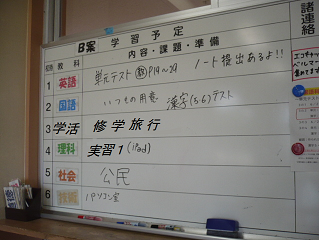 B案 学習予定
校時 教科 内容・課題・準備
1 英語 単元テスト P19~24 ノート提出あるよ!!
2 国語 いつもの用意 漢字(56)テスト
3 学活 修学旅行
4 理科 実習1(iPad)
5 社会 公民
6 技術 パソコン室
諸連絡
エコキャップ
ベルマーク
集めてます